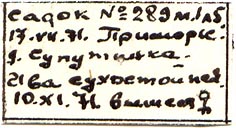 садок № 289 м.1 лб.
17.VII.71. Приморс.
д. Супутинка.
21 ва сухостойнея.
10.XI.71 вышел ♀